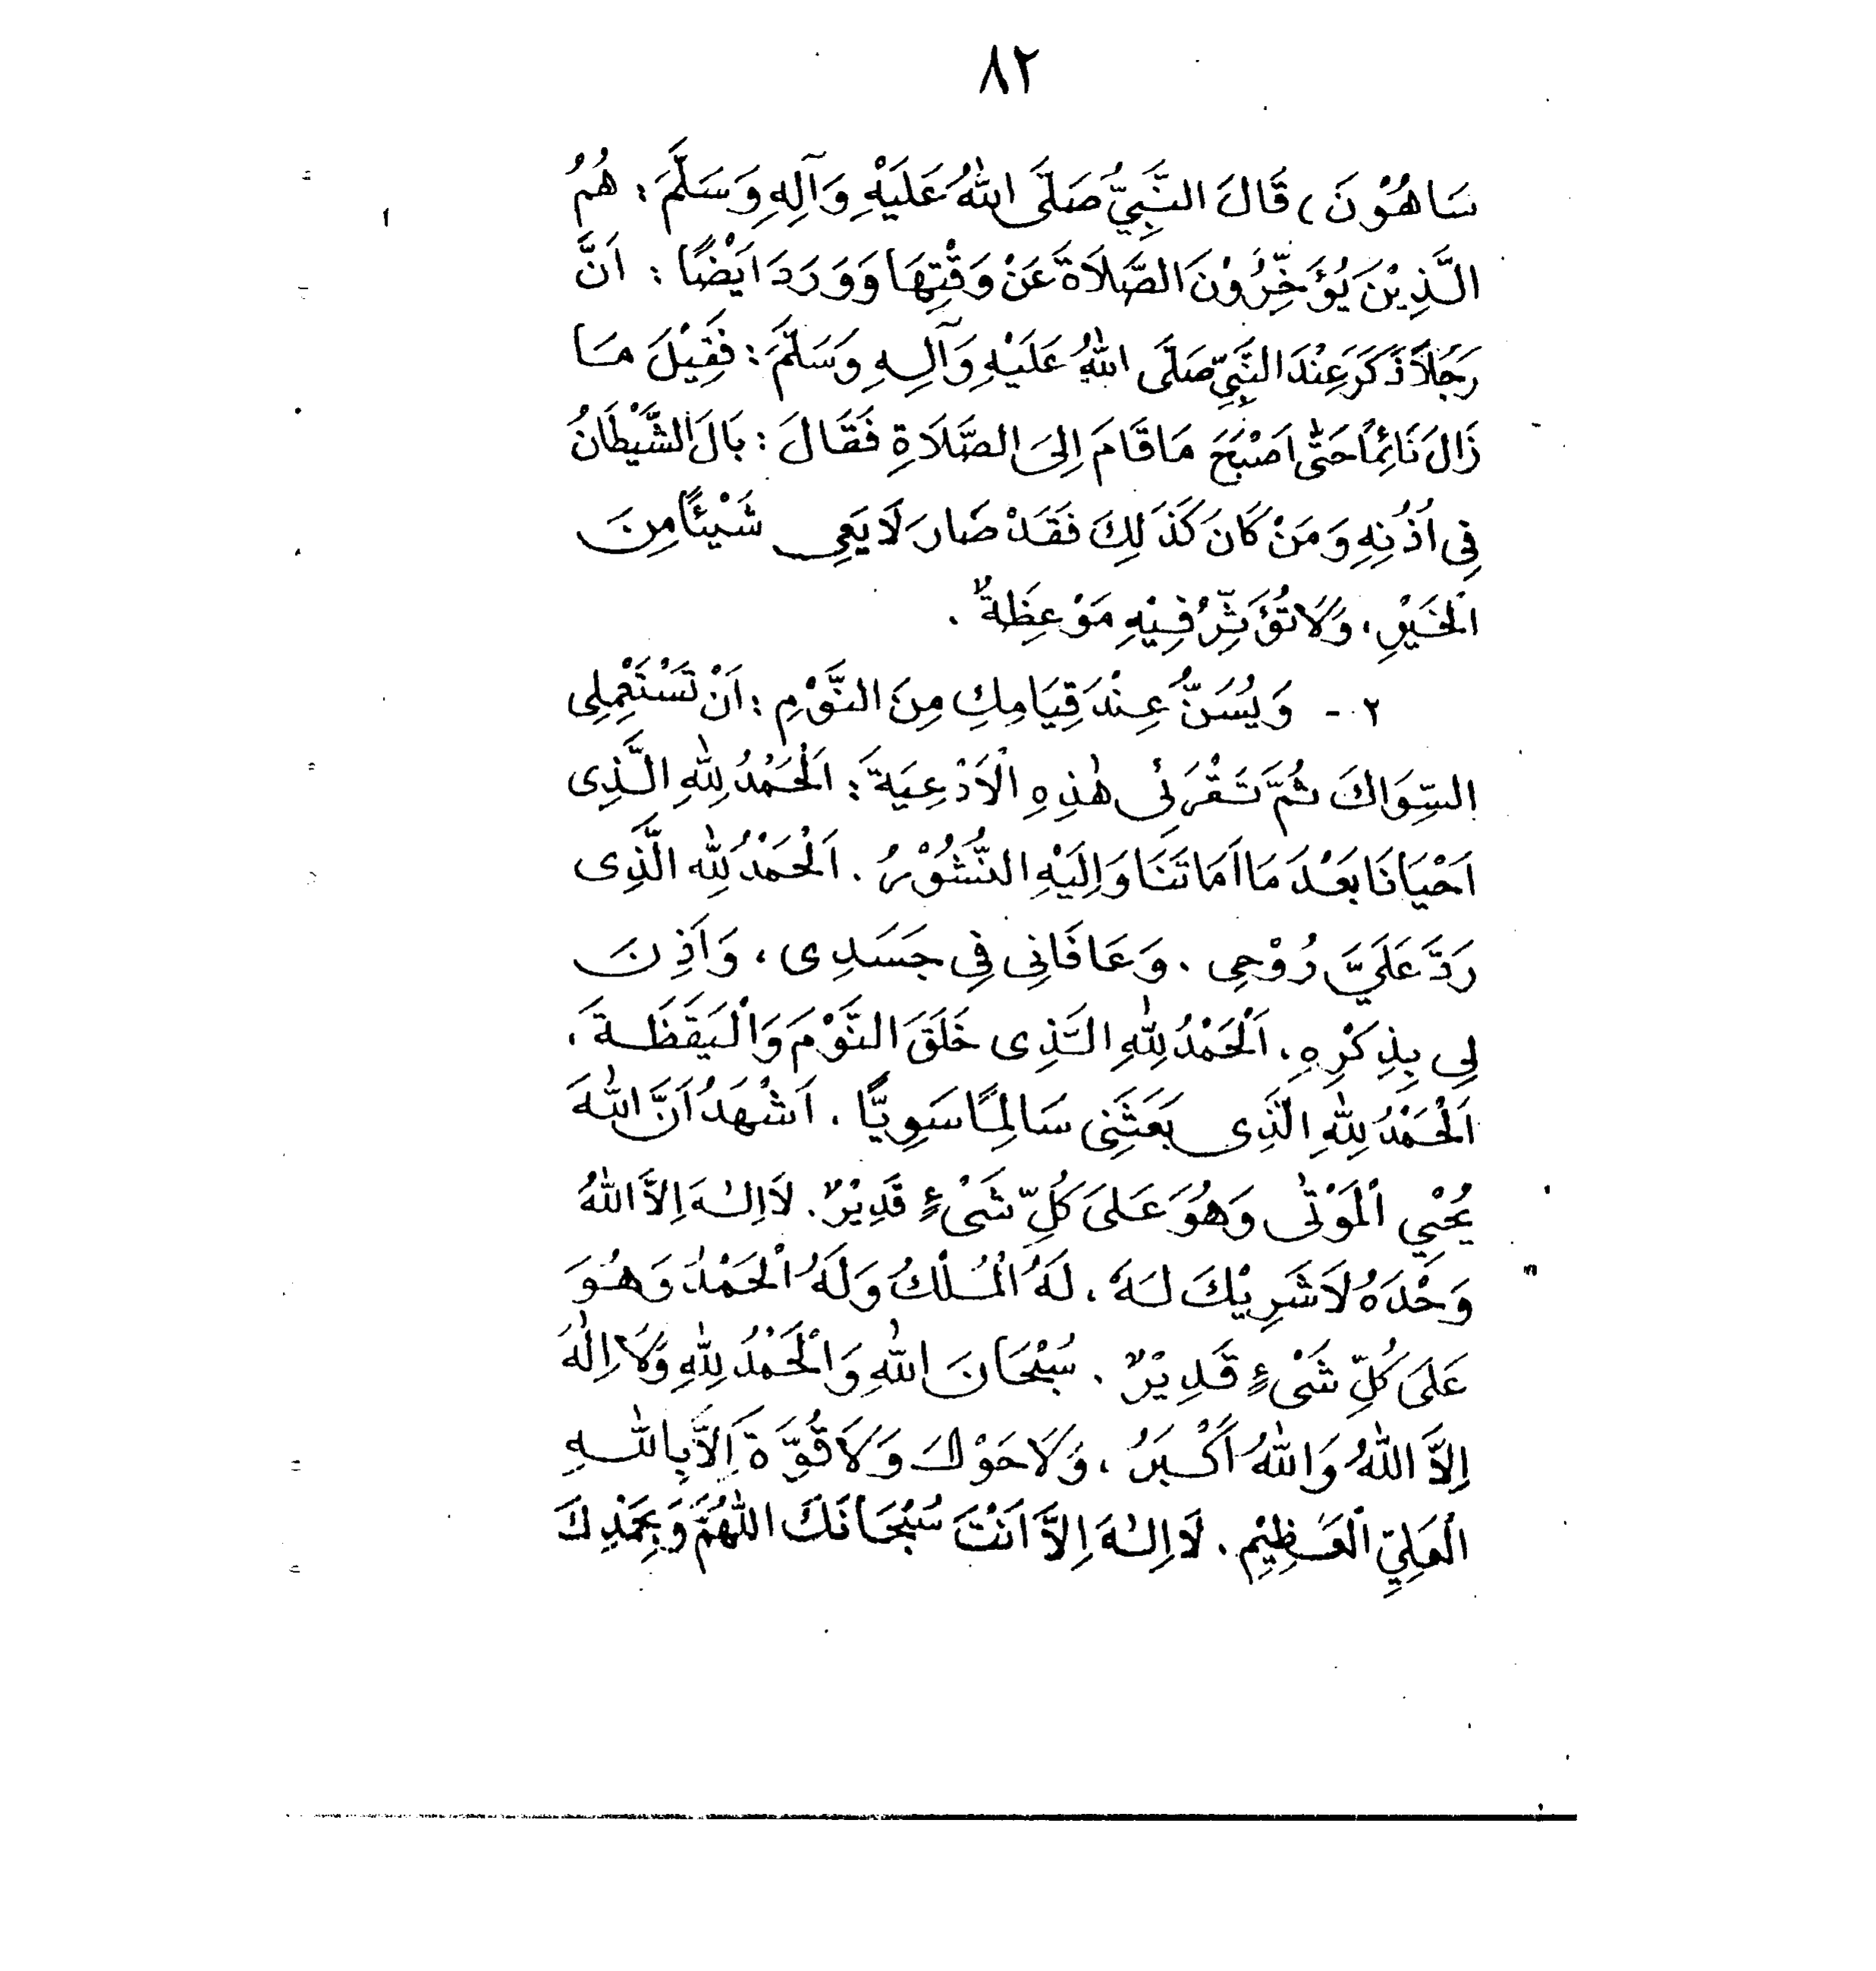 ٨٢
سَاهُوْنَ) قَالَ النَّبِيُّ صَلَّى اللهُ عَلَيْهِ وَآلِهِ وَسَلَّمَ : هُمُ
الَّذِيْنَ يُؤَخِّرُوْنَ الصَّلَاةَ عَنْ وَقْتِهَا وَوَرَدَ اَيْضًا : اَنَّ
رَجُلاً ذَكَرَ عِنْدَ النَّبِيِّ صَلَّى اللهُ عَلَيْهِ وَآلِهِ وَسَلَّمَ : فَقِيْلَ مَا
زَالَ نَائِمًا حَتَّى اَصْبَحَ مَا قَامَ اِلَى الصَّلَاةِ فَقَالَ : بَالَ الشَّيْطَانُ
فِى اُذُنِهِ وَمَنْ كَانَ كَذَلِكَ فَقَدْ صَارَ لَا يَعِى شَيْئًا مِنَ
الْخَيْرِ، وَلَا تُؤَثِّرُ فِيْهِ مَوْعِظَةٌ .
٢ - وَيُسَنُّ عِنْدَ قِيَامِكِ مِنَ النَّوْمِ : اَنْ تَسْتَعْمِلِى
السِّوَاكَ ثُمَّ تَقْرَئِى هٰذِهِ الْاَدْعِيَةَ : اَلْحَمْدُ لِلّٰهِ الَّذِى
اَحْيَانَا بَعْدَ مَا اَمَاتَنَا وَاِلَيْهِ النُّشُوْرُ . اَلْحَمْدُ لِلّٰهِ الَّذِى
رَدَّ عَلَيَّ رُوْحِى . وَعَافَانِى فِى جَسَدِى ، وَاَذِنَ
لِى بِذِكْرِهِ . اَلْحَمْدُ لِلّٰهِ الَّذِى خَلَقَ النَّوْمَ وَالْيَقَظَةَ ،
اَلْحَمْدُ لِلّٰهِ الَّذِى بَعَثَنِى سَالِمًا سَوِيًّا . اَشْهَدُ اَنَّ اللهَ
يُحْيِي الْمَوْتٰى وَهُوَ عَلَى كُلِّ شَىْءٍ قَدِيْرٌ . لَا اِلٰهَ اِلاَّ اللهُ
وَحْدَهُ لَا شَرِيْكَ لَهُ ، لَهُ الْمُلْكُ وَلَهُ الْحَمْدُ وَهُوَ
عَلَى كُلِّ شَىْءٍ قَدِيْرٌ . سُبْحَانَ اللهِ وَالْحَمْدُ لِلّٰهِ وَلَا اِلٰهَ
اِلاَّ اللهُ وَاللهُ اَكْبَرُ ، وَلَا حَوْلَ وَلَا قُوَّةَ اِلاَّ بِاللهِ
الْعَلِيِّ الْعَظِيْمِ . لَا اِلٰهَ اِلاَّ اَنْتَ سُبْحَانَكَ اللّٰهُمَّ وَبِحَمْدِكَ